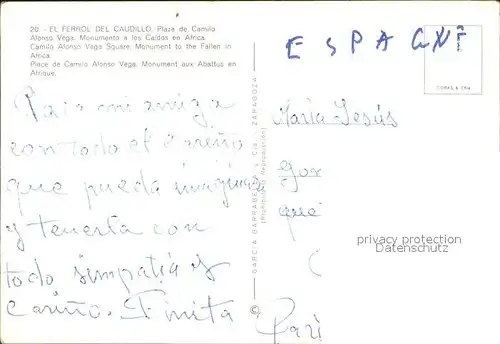 20. - EL FERROL DEL CAUDILLO. Plaza de Camilo
Alonso Vega. Monumento a los Caídos en Africa.
Camilo Alonso Vega Square. Monument to the Fallen in
Africa.
Place de Camilo Alonso Vega. Monument aux Abattus en
Afrique.
ESPAGNE
Para mi amiga
con todo el
que pueda
y tenerla con
todo simpatía y
cariño. Finita
GARCIA GARRABELLA Y Cia. - ZARAGOZA
(Prohibida la Reproducción)
©
Maria Jesús
Gon
que
Pari
privacy protection
Datenschutz